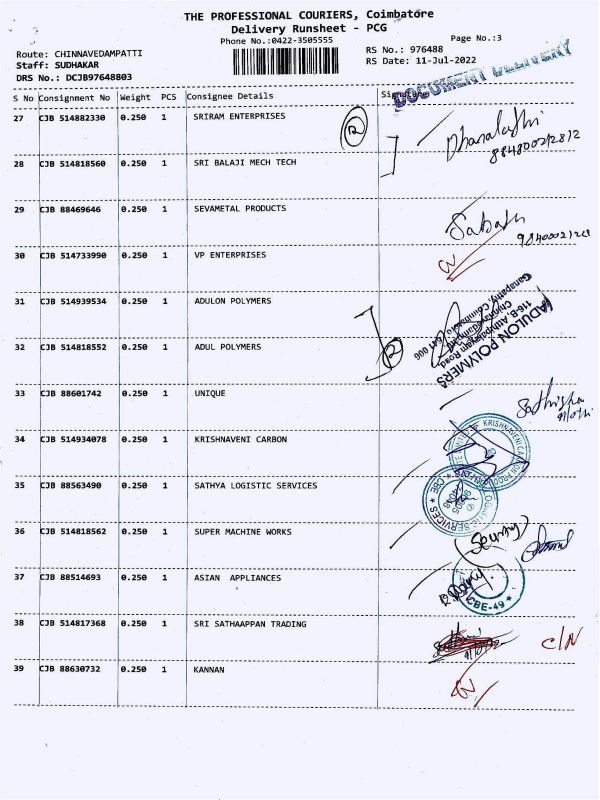 THE PROFESSIONAL COURIERS, Coimbatore
Delivery Runsheet - PCG
Phone No.:0422-3505555
Page No.:3
Route: CHINNAVEDAMPATTI
Staff: SUDHAKAR
DRS No.: DCJB97648803
RS No.: 976488
RS Date: 11-Jul-2022
DOCUMENT DELIVERY
S No Consignment No Weight PCS Consignee Details Signature
27 CJB 514882330 0.250 1 SRIRAM ENTERPRISES
28 CJB 514818560 0.250 1 SRI BALAJI MECH TECH
29 CJB 88469646 0.250 1 SEVAMETAL PRODUCTS
30 CJB 514733990 0.250 1 VP ENTERPRISES
31 CJB 514939534 0.250 1 ADULON POLYMERS
ADULON POLYMERS
116-B, Athipalayam Road,
Chinnavedampatti,
Ganapathy, Coimbatore - 641 006
32 CJB 514818552 0.250 1 ADUL POLYMERS
33 CJB 88601742 0.250 1 UNIQUE
34 CJB 514934078 0.250 1 KRISHNAVENI CARBON
35 CJB 88563490 0.250 1 SATHYA LOGISTIC SERVICES
36 CJB 514818562 0.250 1 SUPER MACHINE WORKS
37 CJB 88514693 0.250 1 ASIAN APPLIANCES
CBE-49
38 CJB 514817368 0.250 1 SRI SATHAAPPAN TRADING
C/N
39 CJB 88630732 0.250 1 KANNAN